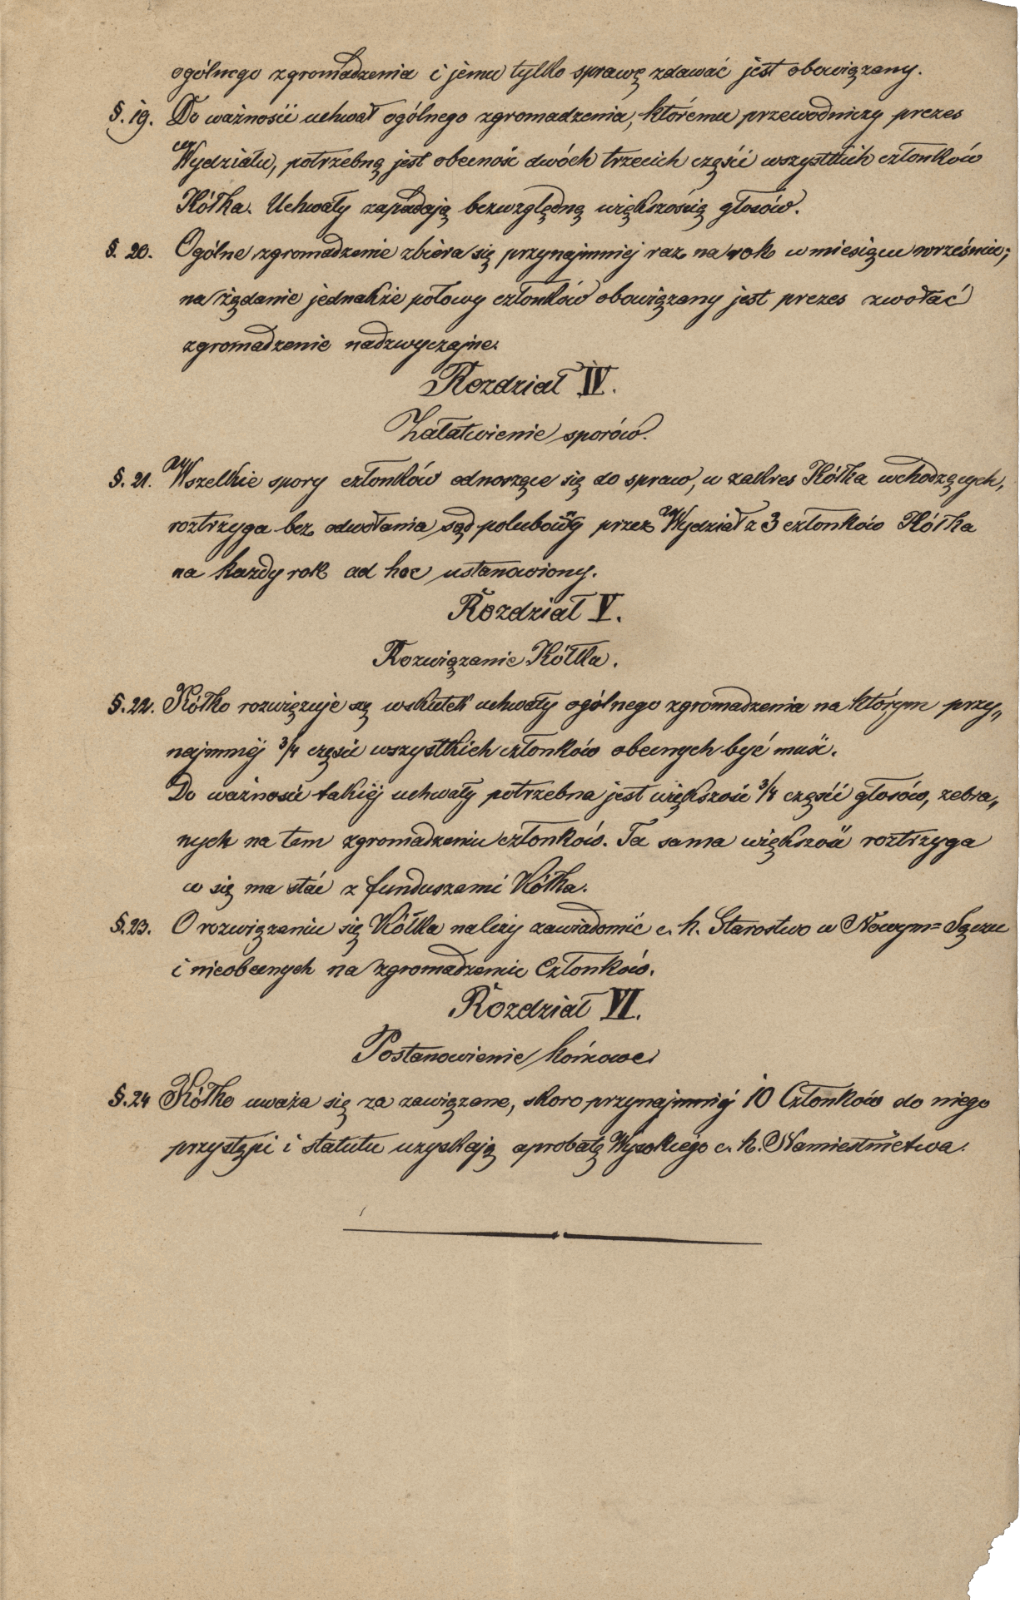 ogólnego zgromadzenia i jemu tylko sprawę zdawać jest obowiązany.
§. 19. Do ważności uchwał ogólnego zgromadzenia, któremu przewodniczy prezes
Wydziału, potrzebną jest obecność dwóch trzecich części wszystkich członków
Kółka. Uchwały zapadają bezwzględną większością głosów.
§. 20. Ogólne zgromadzenie zbiera się przynajmniej raz na rok w miesiącu wrześniu;
na żądanie jednakże połowy członków obowiązany jest prezes zwołać
zgromadzenie nadzwyczajne.
Rozdział IV.
Załatwienie sporów.
§. 21. Wszelkie spory członków odnoszące się do spraw, w zakres Kółka wchodzących,
roztrzyga bez odwołania sąd polubowny przez Wydział z 3 członków Kółka
na każdy rok ad hoc ustanowiony.
Rozdział V.
Rozwiązanie Kółka.
§. 22. Kółko rozwięzuje się wskutek uchwały ogólnego zgromadzenia na którym przy„
najmniéj 3/4 części wszystkich członków obecnych być musi.
Do ważności takiéj uchwały potrzebna jest większość 3/4 części głosów, zebra„
nych na tem zgromadzeniu członków. Ta sama większość roztrzyga
co się ma stać z funduszami Kółka.
§. 23. O rozwiązaniu się Kółka należy zawiadomić c. k. Starostwo w Nowym=Sączu
i nieobecnych na zgromadzeniu Członków.
Rozdział VI.
Postanowienie końcowe.
§. 24 Kółko uważa się za zawiązane, skoro przynajmniéj 10 Członków do niego
przystąpi i statuta uzyskają aprobatę Wysokiego c. k. Namiestnictwa.